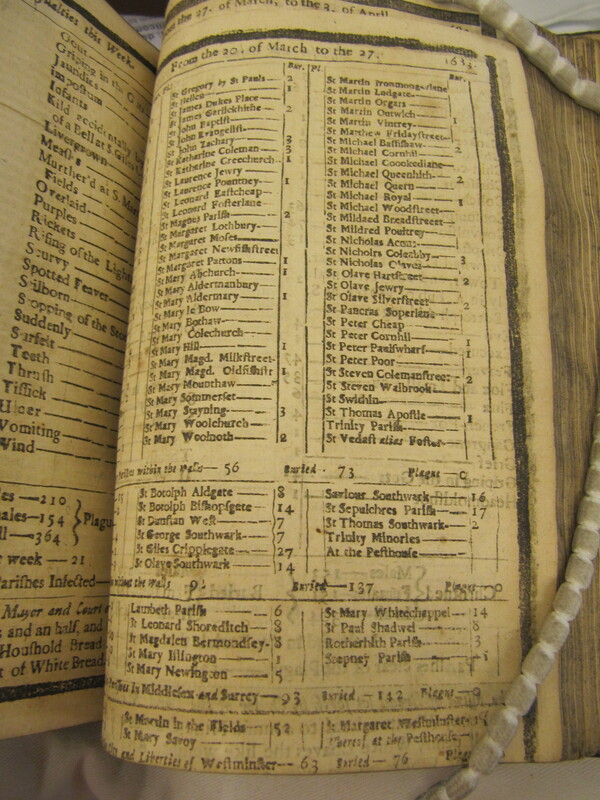 of March, to the 3. of April
ualties this Week.
Gout
Griping in the G
Jaundies
Imposthum
Infants
Kild accidentally
of a Bell at S. Giles
Livergrown
Measles
Murther'd at S. M
Fields
Overlaid
Purples
Rickets
Rising of the Light
Scurvy
Spotted Feaver
Stilborn
Stopping of the Sto
Suddenly
Surfeit
Teeth
Thrush
Tissick
Ulcer
Vomiting
Wind
les—210
ales—154 Plagu
ll—364
week—21
Parishes Infected
Mayor and Court
and an half, and
Houshold Bread
of White Bread
From the 20. of March to the 27.
Bur. Pl. Bur.
St Gregory by St Pauls 2
St Hellen 1
St James Dukes Place
St James Garlickhithe 2
St John Baptist
St John Evangelist
St John Zachary 3
St Katharine Coleman 3
St Katharine Creechurch 1
St Laurence Jewry
St Laurence Pountney 1
St Leonard Eastcheap
St Leonard Fosterlane
St Magnus Parish 2
St Margaret Lothbury
St Margaret Moses
St Margaret Newfishstreet
St Margaret Pattons 1
St Mary Abchurch 1
St Mary Aldermanbury
St Mary Aldermary 1
St Mary le Bow
St Mary Bothaw
St Mary Colechurch
St Mary Hill 1
St Mary Magd. Milkstreet
St Mary Magd. Oldfishstr 1
St Mary Mounthaw
St Mary Sommerset
St Mary Stayning 3
St Mary Woolchurch
St Mary Woolnoth 2
St Martin Ironmongerlane
St Martin Ludgate
St Martin Orgars
St Martin Outwich
St Martin Vintrey 1
St Matthew Fridaystreet
St Michael Bassishaw
St Michael Cornhil 2
St Michael Crookedlane
St Michael Queenhith 2
St Michael Quern
St Michael Royal 1
St Michael Woodstreet
St Mildred Breadstreet
St Mildred Poultrey
St Nicholas Acons
St Nicholas Coleabby
St Nicholas Olaves 3
St Olave Hartstreet 2
St Olave Jewry
St Olave Silverstreet 2
St Pancras Soperlane
St Peter Cheap
St Peter Cornhil 1
St Peter Paulswharf 1
St Peter Poor
St Steven Colemanstreet 2
St Steven Walbrook
St Swithin
St Thomas Apostle 1
Trinity Parish
St Vedast alias Foster
Parishes within the Walls—56 Buried—73 Plague—0
St Botolph Aldgate 8
St Botolph Bishopsgate 14
St Dunstan West 7
St George Southwark 7
St Giles Cripplegate 27
St Olave Southwark 14
Saviour Southwark 16
St Sepulchres Parish 17
St Thomas Southwark 2
Trinity Minories
At the Pesthouse
without the Walls Buried—137 Plague—0
Lambeth Parish 6
St Leonard Shoreditch 8
St Magdalen Bermondsey 8
St Mary Islington 1
St Mary Newington 5
St Mary Whitechappel 14
St Paul Shadwel 8
Rotherhith Parish 3
Stepney Parish
Parishes in Middlesex and Surrey—93 Buried—142 Plague—0
St Martin in the Fields 52
St Mary Savoy
St Margaret Westminster
Whereof at the Pesthouse
and Liberties of Westminster—63 Buried—76 Plague